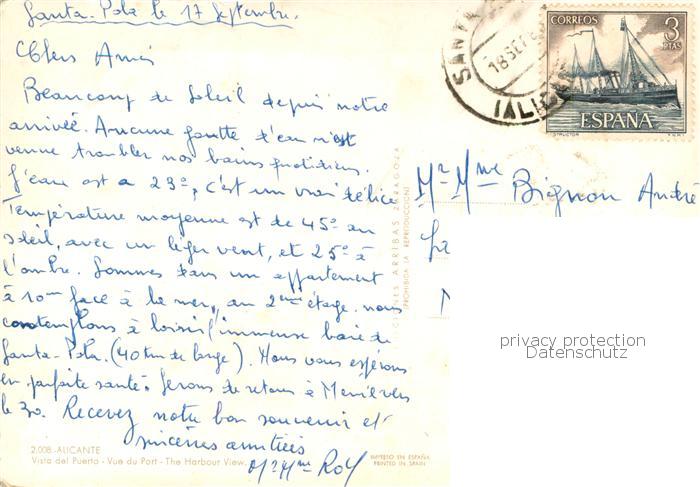 Santa Pola le 17 Septembre.
Chers Amis
Beaucoup de Soleil depuis notre
arrivée. Aucune goutte d'eau n'est
venue troubler nos bains quotidiens.
L'eau est à 23°, c'est un vrai délice
Température moyenne est de 45° au
soleil, avec un léger vent, et 25° à
l'ombre. Sommes dans un appartement
à 10m face à la mer, au 2ème étage. nous
contemplons à loisir l'immense baie de
Santa-Pola. (40 km de large). Nous vous espérons
en parfaite santé. Serons de retour à
le 30. Recevez notre bon souvenir et
sincères amitiés
Mr Mme Roy
2.008.-ALICANTE
Vista del Puerto - Vue du Port - The Harbour View.
IMPRESO EN ESPAÑA
PRINTED IN SPAIN
ARRIBAS ZARAGOZA
PROHIBIDA LA REPRODUCCION
SANTA
18 SEP
(ALICAN
CORREOS
3
PTAS
ESPAÑA
Mr Mme Bignon André
privacy protection
Datenschutz